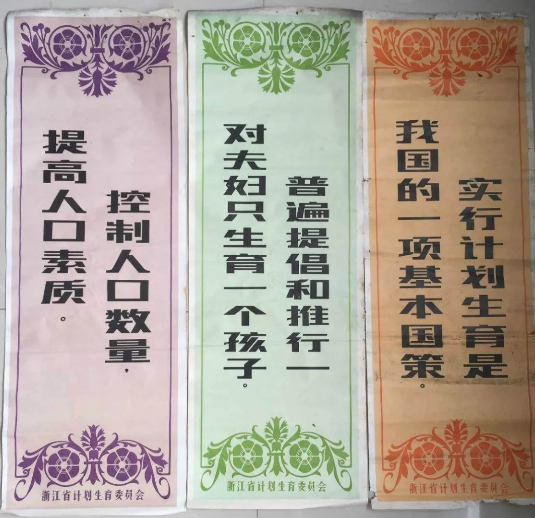 实行计划生育是
我国的一项基本国策。
浙江省计划生育委员会
普遍提倡和推行一
对夫妇只生育一个孩子。
浙江省计划生育委员会
控制人口数量，
提高人口素质。
浙江省计划生育委员会